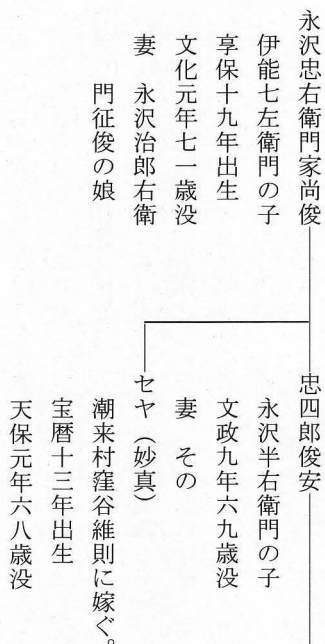 永沢忠右衛門家尚俊
伊能七左衛門の子
享保十九年出生
文化元年七一歳没
妻　永沢治郎右衛
門征俊の娘
忠四郎俊安
永沢半右衛門の子
文政九年六九歳没
妻　その
セヤ（妙真）
潮来村窪谷維則に嫁ぐ。
宝暦十三年出生
天保元年六八歳没